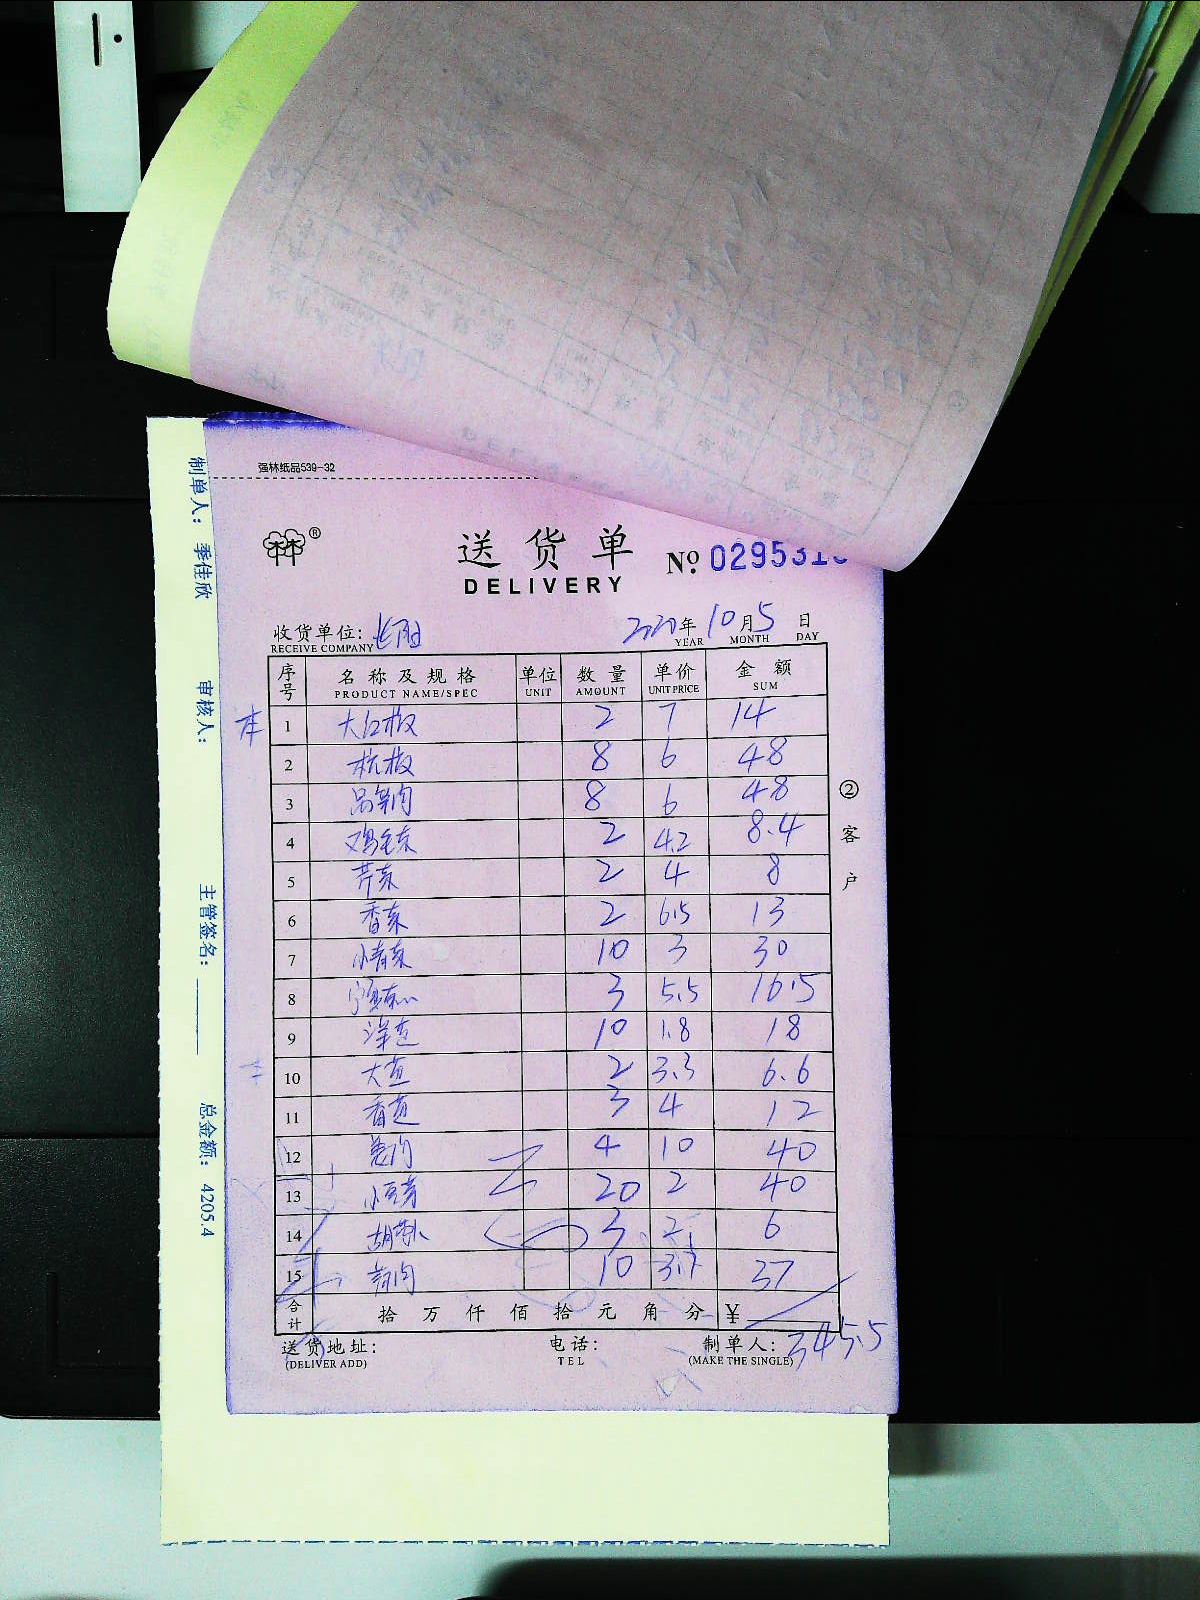 强林纸品539-32
送货单
DELIVERY
№ 029531
收货单位:
RECEIVE COMPANY
2020年10月5日
YEAR MONTH DAY
序号 名称及规格 单位 数量 单价 金额
PRODUCT NAME/SPEC UNIT AMOUNT UNIT PRICE SUM
1 大红椒 2 7 14
2 杭椒 8 6 48
3 8 6 48
4 鸡毛菜 2 4.2 8.4
5 芹菜 2 4 8
6 香菜 2 6.5 13
7 小青菜 10 3 30
8 3 5.5 16.5
9 10 1.8 18
10 2 3.3 6.6
11 3 4 12
12 4 10 40
13 小豆芽 20 2 40
14 胡萝卜 3 2 6
15 10 3.7 37
合计 拾万仟佰拾元角分 ¥
345.5
送货地址:
(DELIVER ADD)
电话:
TEL
制单人:
(MAKE THE SINGLE)
② 客户
制单人: 季佳欣 审核人: 主管签名: 总金额: 4205.4